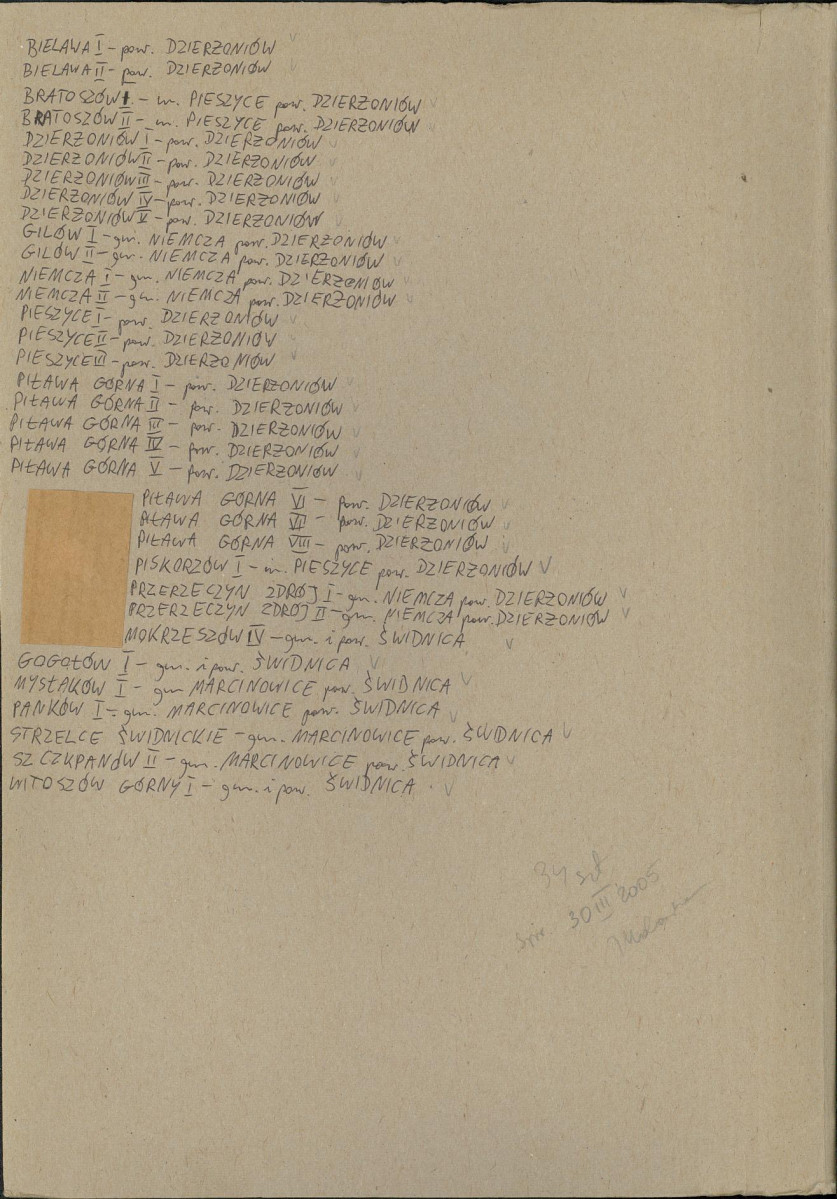 BIELAWA I – pow. DZIERŻONIÓW V
BIELAWA II – pow. DZIERŻONIÓW V
BRATOSZÓW I. – m. PIESZYCE pow. DZIERŻONIÓW V
BRATOSZÓW II – m. PIESZYCE pow. DZIERŻONIÓW V
DZIERŻONIÓW I – pow. DZIERŻONIÓW V
DZIERŻONIÓW II – pow. DZIERŻONIÓW V
DZIERŻONIÓW III – pow. DZIERŻONIÓW V
DZIERŻONIÓW IV – pow. DZIERŻONIÓW V
DZIERŻONIÓW V – pow. DZIERŻONIÓW V
GILÓW I – gm. NIEMCZA pow. DZIERŻONIÓW V
GILÓW II – gm. NIEMCZA pow. DZIERŻONIÓW V
NIEMCZA I – gm. NIEMCZA pow. DZIERŻONIÓW V
NIEMCZA II – gm. NIEMCZA pow. DZIERŻONIÓW V
PIESZYCE I – pow. DZIERŻONIÓW V
PIESZYCE II – pow. DZIERŻONIÓW V
PIESZYCE III – pow. DZIERŻONIÓW V
PIŁAWA GÓRNA I – pow. DZIERŻONIÓW V
PIŁAWA GÓRNA II – pow. DZIERŻONIÓW V
PIŁAWA GÓRNA III – pow. DZIERŻONIÓW V
PIŁAWA GÓRNA IV – pow. DZIERŻONIÓW V
PIŁAWA GÓRNA V – pow. DZIERŻONIÓW V
PIŁAWA GÓRNA VI – pow. DZIERŻONIÓW V
PIŁAWA GÓRNA VII – pow. DZIERŻONIÓW V
PIŁAWA GÓRNA VIII – pow. DZIERŻONIÓW V
PISKORZÓW I – m. PIESZYCE pow. DZIERŻONIÓW V
PRZERZECZYN ZDRÓJ I – gm. NIEMCZA pow. DZIERŻONIÓW V
PRZERZECZYN ZDRÓJ II – gm. NIEMCZA pow. DZIERŻONIÓW V
MOKRZESZÓW IV – gm. i pow. ŚWIDNICA V
GOGOŁÓW I – gm. i pow. ŚWIDNICA V
MYSŁAKÓW I – gm MARCINOWICE pow. ŚWIDNICA V
PANKÓW I – gm. MARCINOWICE pow. ŚWIDNICA V
STRZELCE ŚWIDNICKIE – gm. MARCINOWICE pow. ŚWIDNICA V
SZCZKPANÓW II – gm. MARCINOWICE pow. ŚWIDNICA V
WITOSZÓW GÓRNY I – gm. i pow. ŚWIDNICA V
34 szt
30 III 2005